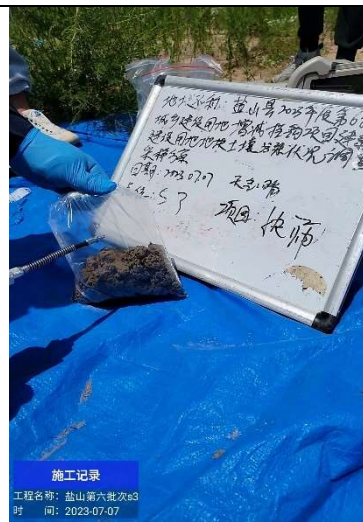 地块名称:盐山县2023年度第6批
城乡建设用地增减挂钩项目建新
建设用地地块土壤污染状况调查
采样方案
日期:2023.07.07 天气:晴
S3 项目:快筛
施工记录
工程名称: 盐山第六批次s3
时 间: 2023-07-07